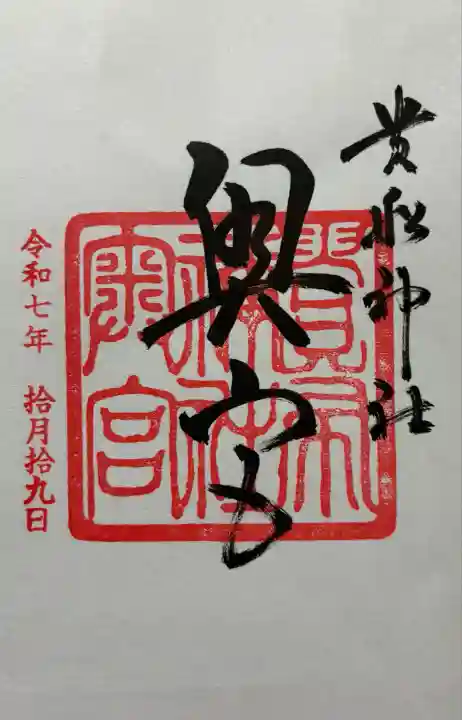 貴船神社
奥宮
令和七年 拾月拾九日
奥宮